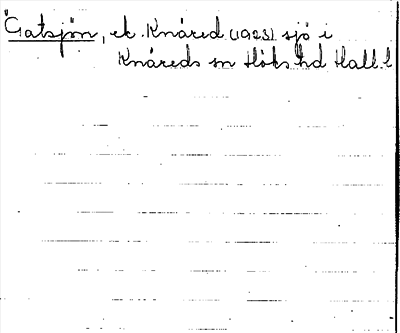 Gatsjön, ek. Knäred (1923) sjö i
Knäreds sn Höks hd Hall. l